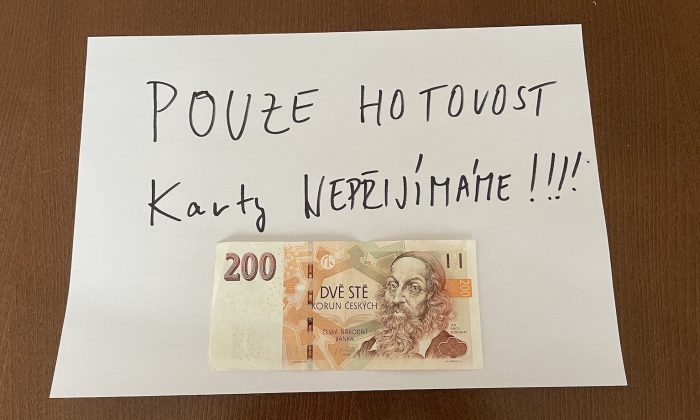 POUZE HOTOVOST
Karty NEPŘIJÍMÁME!!!!
200
DVĚ STĚ
KORUN ČESKÝCH
ČESKÁ NÁRODNÍ
BANKA
200
JAN
AMOS
KOMENSKÝ